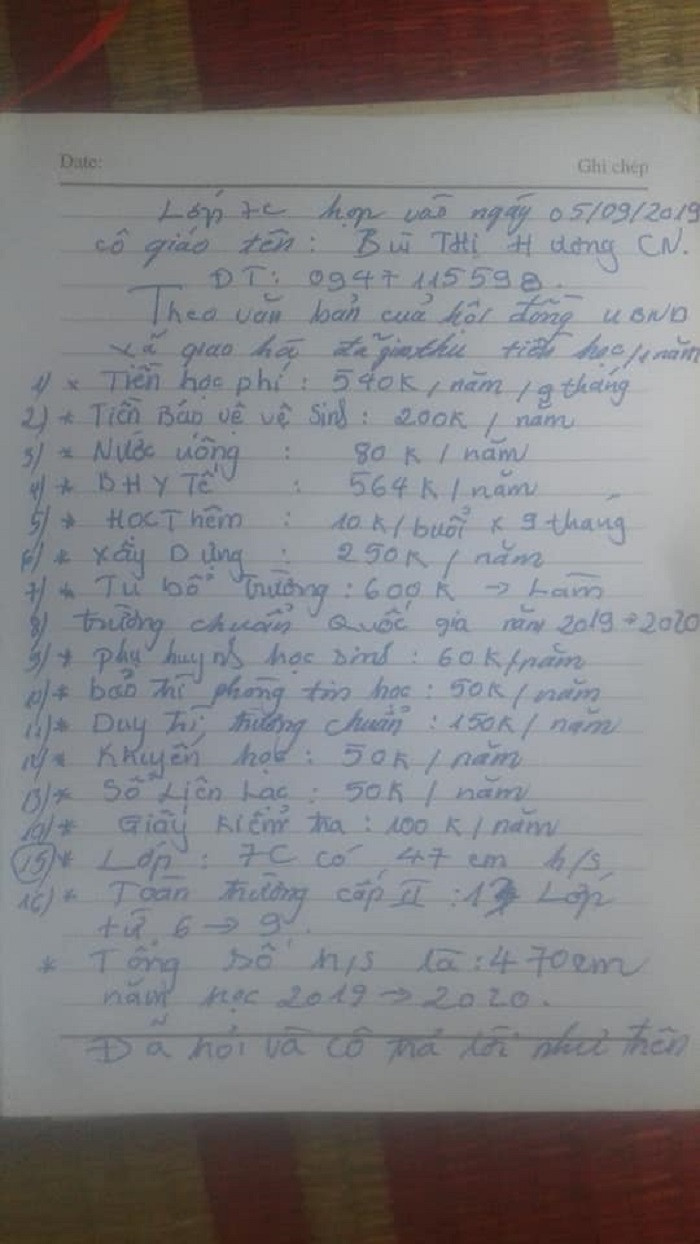 Date: Ghi chép
Lớp 7C họp vào ngày 05/09/2019
cô giáo tên: Bùi THị Hương CN.
ĐT: 0947 115598.
Theo văn bản cuả hội đồng UBND
xã giao hà đã giao thu tiền học/1 năm
1) * Tiền học phí: 540K/năm/9 tháng
2) * Tiền Bảo vệ vệ Sinh: 200K / năm
3) * Nước uống : 80 K / năm
4) * BHY Tế : 564K / năm
5) * HỌC Thêm : 10K/buổi x 9 tháng
6) * Xây Dựng : 250K / năm
7) * Tu bổ Trường: 600K → Làm
8) trường chuẩn Quốc gia năm 2019 → 2020
9) * phụ huynh học sinh: 60K/năm
10) * bảo trì phòng tin học: 50K / năm
11) * Duy Trì trường chuẩn: 150K / năm
12) * Khuyến học: 50K / năm
13) * Sổ Liên Lạc: 50K / năm
14) * Giấy Kiểm tra: 100 K/năm
15) * Lớp: 7C có 47 em h/s
16) * Toàn trường cấp II: Lớp
từ 6 → 9.
* Tổng số h/s là: 470em
năm học 2019 → 2020.
Đã hỏi và cô trả lời như trên